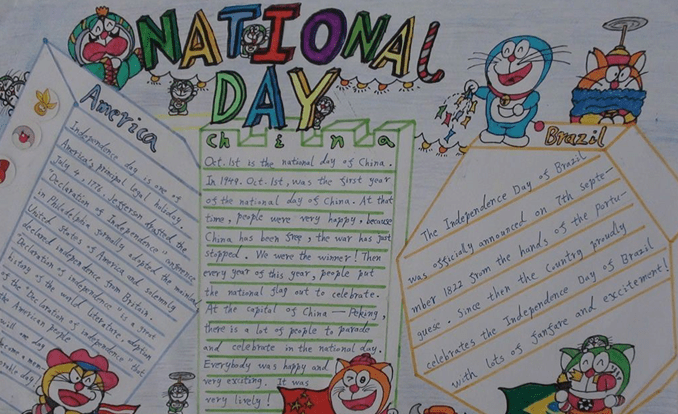 NATIONAL
DAY
America
Independence day is one of
America's principal legal holiday
July 4, 1776. Jefferson drafted the
"Declaration of Independence" conference
in Philadelphia formally adopted the mainly
United States of America and solemnly
declared independence from Britain.
Declaration of independence "is a
history of the world literature, adoption
of the Declaration of independence" that
the American people
will one day
become a
China
Oct. 1st is the national day of China.
In 1949. Oct. 1st, was the first year
of the national day of China. At that
time, people were very happy, because
China has been free, the war has just
stopped. We were the winner! Then
every year of this year, people put
the national flag out to celebrate.
At the capital of China — Peking,
there is a lot of people to parade
and celebrate in the national day.
Everybody was happy and
very exciting. It was
very lively!
Brazil
The Independence Day of Brazil
was officially announced on 7th septe-
mber 1822 from the hands of the Portu-
guese. since then the Country proudly
celebrates the Independence Day of Brazil
with lots of fanfare and excitement!